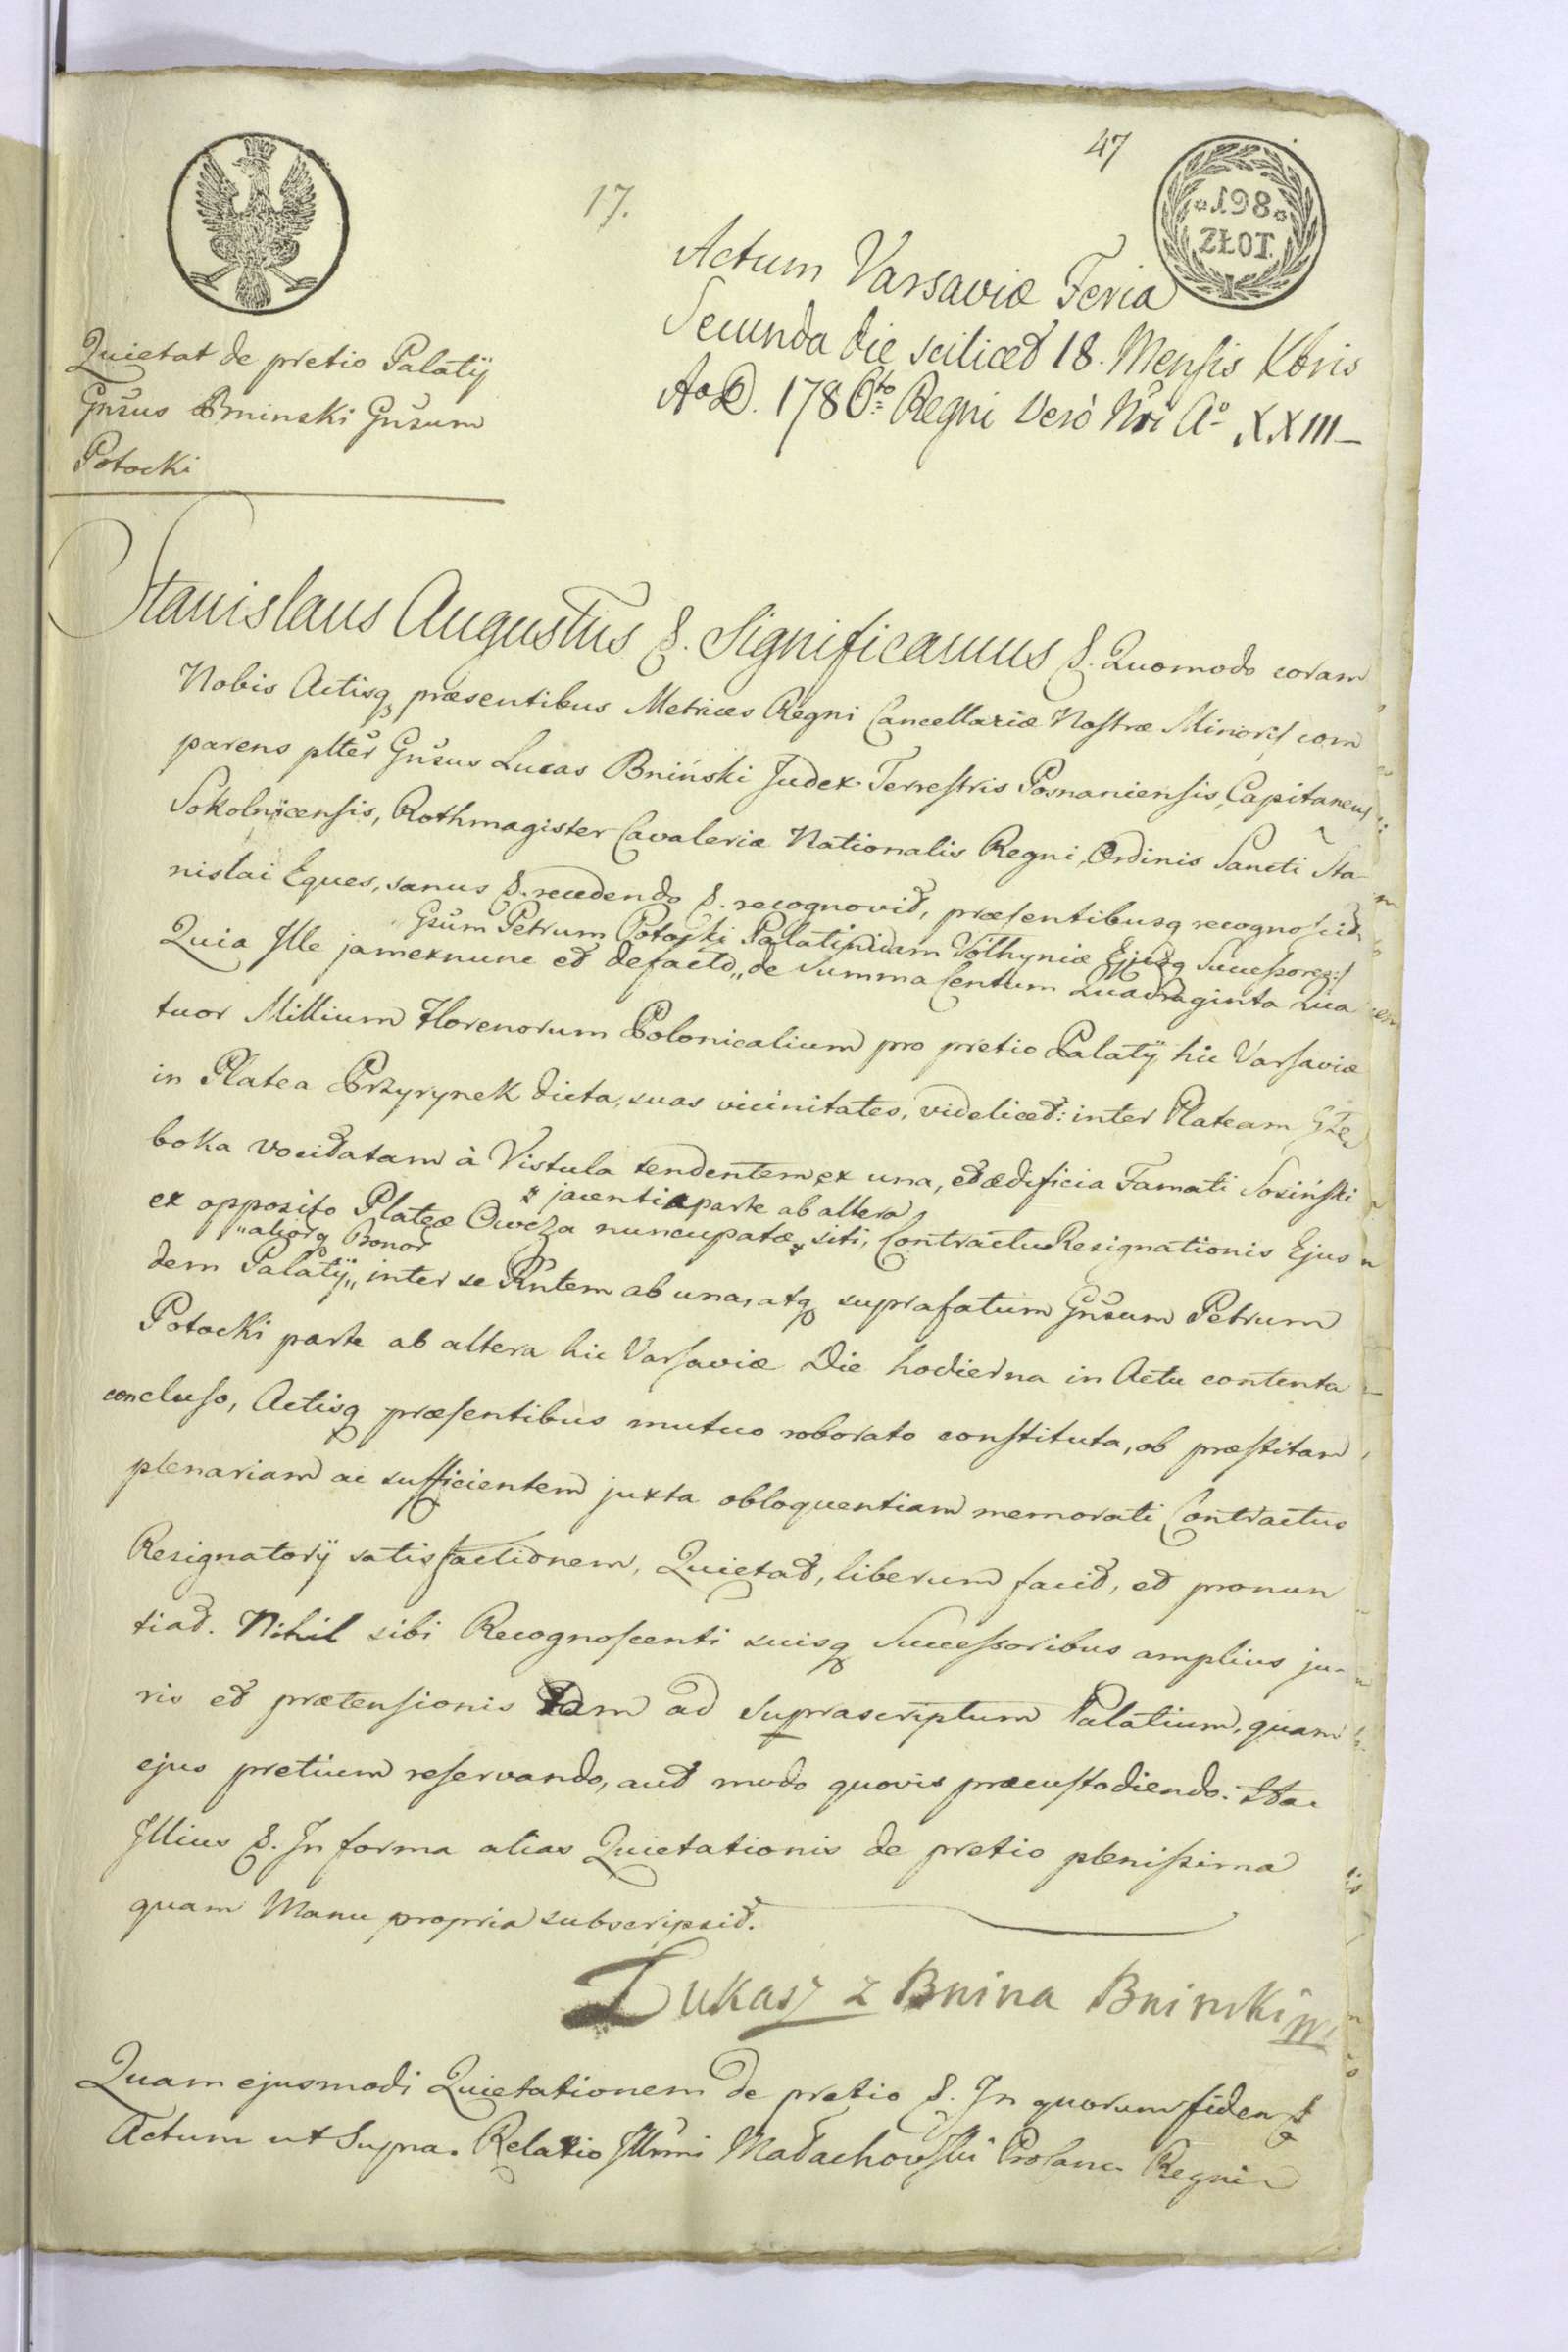 47
17.
198
ZŁOT.
Actum Varsaviæ Feria
Secunda die scilicet 18. Mensis Xbris
Ao D. 1786to Regni Verò Nri Ao XXIII
Quietat de pretio Palatÿ
Gnsus Bninski Gnsum
Potocki
Stanislaus Augustus &. Significamus &. Quomodo coram
Nobis Actisq præsentibus Metrices Regni Cancellariæ Nostræ Minoris com
parens plter Gnsus Lucas Bniński Judex Terrestris Posnaniensis, Capitaneus
Sokolnicensis, Rothmagister Cavaleriæ Nationalis Regni, Ordinis Sancti Sta-
nislai Eques, sanus &. recedendo &. recognovit, præsentibusq recognoscit.
Gsum Petrum Potocki Palatinidam Volhyniæ Ejusdq Successores
Quia Ille jamexnunc et defacto,, de Summa Centum Quadraginta Qua
tuor Millium Florenorum Polonicalium pro pretio Palatÿ hic Varsaviæ
in Platea Przyrynek dicta, suas vicinitates, videlicet: inter Plateam Głę
boka vocitatam à Vistula tendentem ex una, et ædificia Famati Sosiński
x jacentia parte ab altera
ex opposito Plateæ Owcza nuncupatæ x siti, Contractu Resignationis Ejus
,,aliorq Bonor
dem Palatÿ,, inter se Rntem ab una, atq suprafatum Gnsum Petrum
Potocki parte ab altera hic Varsaviæ Die hodierna in Actu contenta
concluso, Actisq præsentibus mutuo roborato constituta, ob præstitam
plenariam ac sufficientem juxta obloquentiam memorati Contractus
Resignatorÿ satisfactionem, Quietat, liberum facit, et pronun
tiat. Nihil sibi Recognoscenti suisq Successoribus amplius ju-
ris et prætensionis tam ad Suprascriptum Palatium, quam
ejus pretium reservando, aut modo quovis præcustodiendo. Stae
Illius &. In forma alias Quietationis de pretio plenissima
quam Manu propria subscripsit.
Łukasz z Bnina Bninski mp
Quam ejusmodi Quietationem de pretio &. In quorum fidem &
Actum ut Supra. Relatio Illmi Małachowski ProCanc. Regni